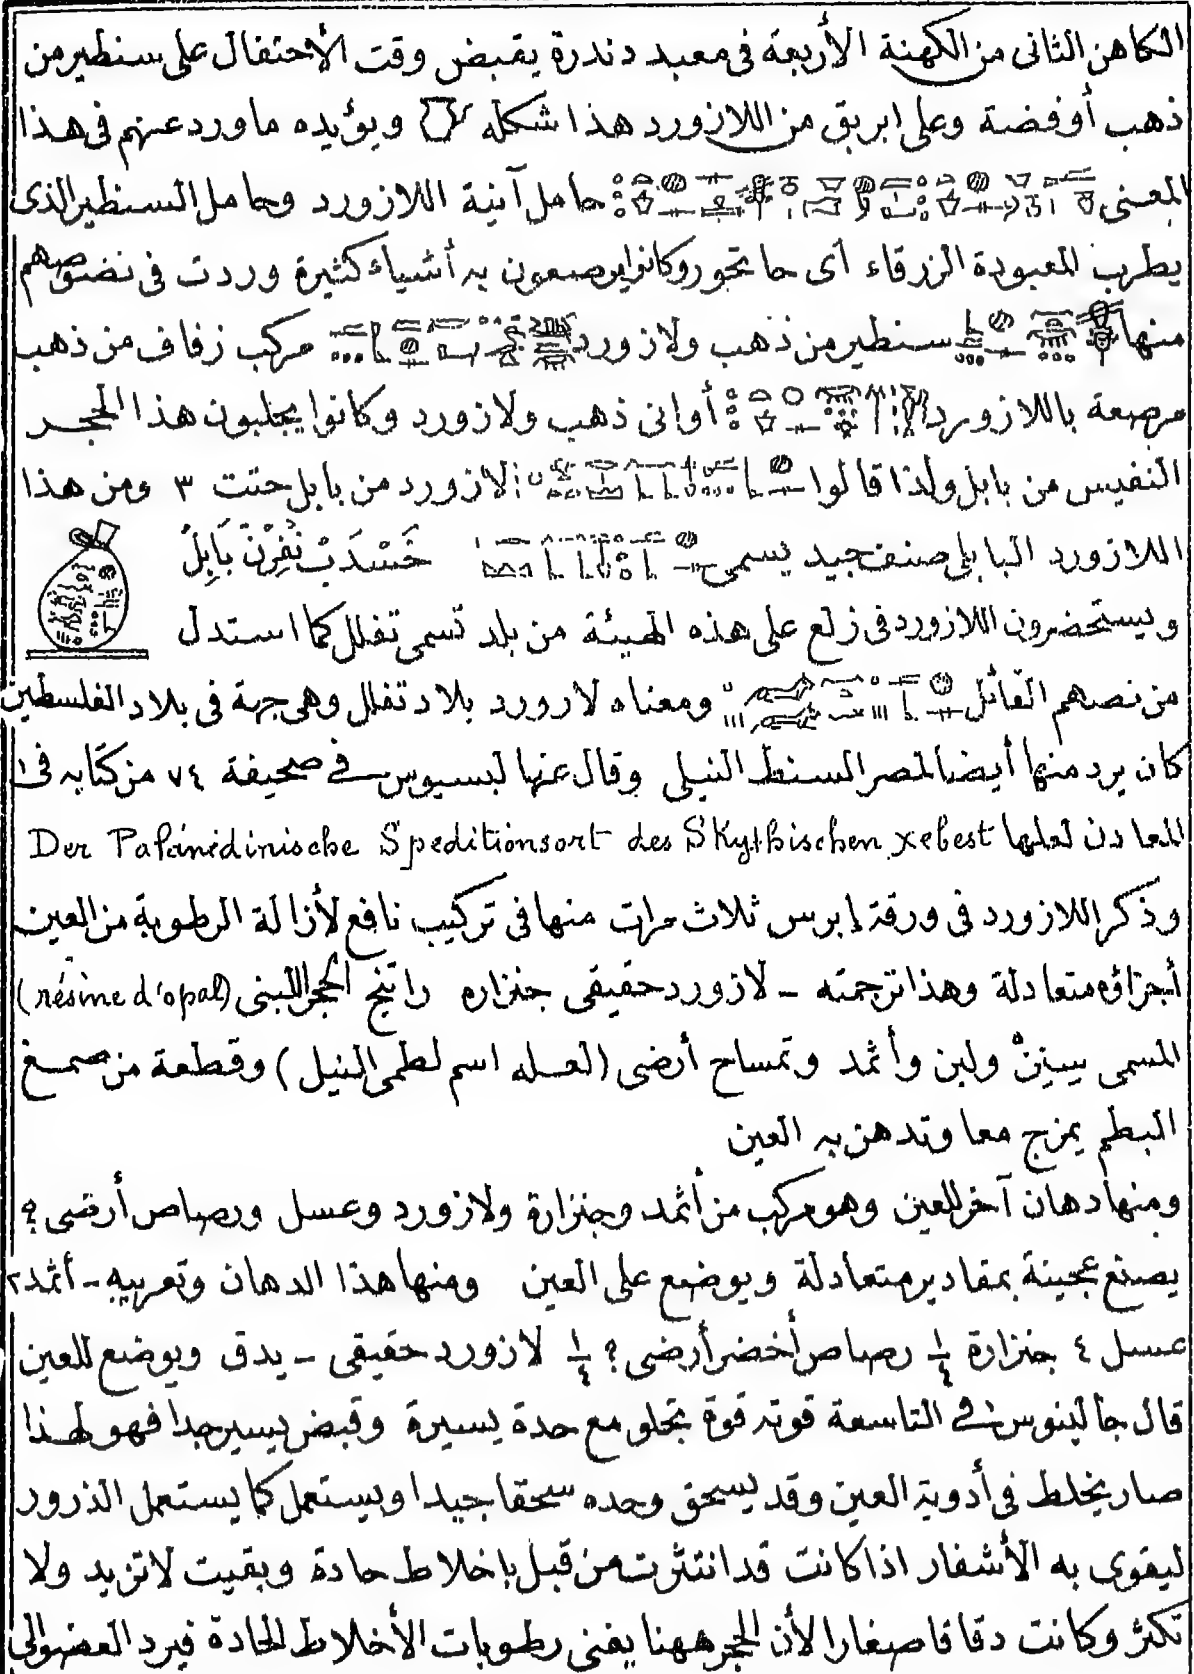 الكاهن الثانى من الكهنة الأربعة فى معبد دندرة يقبض وقت الأحتفال على سنطير من
ذهب أوفضة وعلى ابريق من اللازورد هذا شكله ويؤيده ماورد عنهم فى هذا
المعنى حامل آنية اللازورد وحامل السنطير الذى
يطرب المعبودة الزرقاء أى حاتحور وكانوا يرصعون به أشياء كثيرة وردت فى نصوصهم
منها سنطير من ذهب ولازورد مركب زفاف من ذهب
مرصعة باللازورد أوانى ذهب ولازورد وكانوا يجلبون هذا الحجر
النفيس من بابل ولذا قالوا لازورد من بابل حتت ٣ ومن هذا
اللازورد البابلى صنف جيد يسمى خَسْدَبْ نُفِرْنْ بَابِلْ
ويستحضرون اللازورد فى زلع على هذه الهيئة من بلد تسمى تفلل كما استدل
من نصهم القائل ومعناه لازورد بلاد تفلل وهى جهة فى بلاد الفلسطين
كان يرد منها أيضا لمصر السنط النيلى وقال عنها لبسيوس فى صحيفة ٧٤ من كتابه فى
المعادن لعلها Der Palänédinische Speditionsort des Skythischen xebest
وذكر اللازورد فى ورقة إبرس ثلاث مرات منها فى تركيب نافع لأزالة الرطوبة من العين
أجزاؤه متعادلة وهذا ترجمته - لازورد حقيقى جنزاره راتنج الحجر اللبنى (résine d'opal)
المسمى ولبن وأثمد وتمساح أرضى (لعله اسم لطمى النيل) وقطعة من صمغ
البطم يمزج معا وتدهن به العين
ومنها دهان آخر للعين وهو مركب من أثمد وجنزارة ولازورد وعسل ورصاص أرضى؟
يصنع عجينة بمقادير متعادلة ويوضع على العين ومنها هذا الدهان وتعريبه - أثمد ٢
عسل ٤ جنزارة ١/٤ رصاص أخضر أرضى؟ ١/٤ لازورد حقيقى - يدق ويوضع للعين
قال جالينوس فى التاسعة قوته قوة تجلو مع حدة يسيرة وقبض يسير جدا فهو لهذا
صار يخلط فى أدوية العين وقد يسحق وحده سحقا جيدا ويستعمل كما يستعمل الذرور
ليقوى به الأشفار اذا كانت قد انتثرت من قبل باخلاط حادة وبقيت لاتزيد ولا
تكثر وكانت دقاقا صغارا لأن الحجر ههنا يفنى رطوبات الأخلاط الحادة فيرد العضو الى